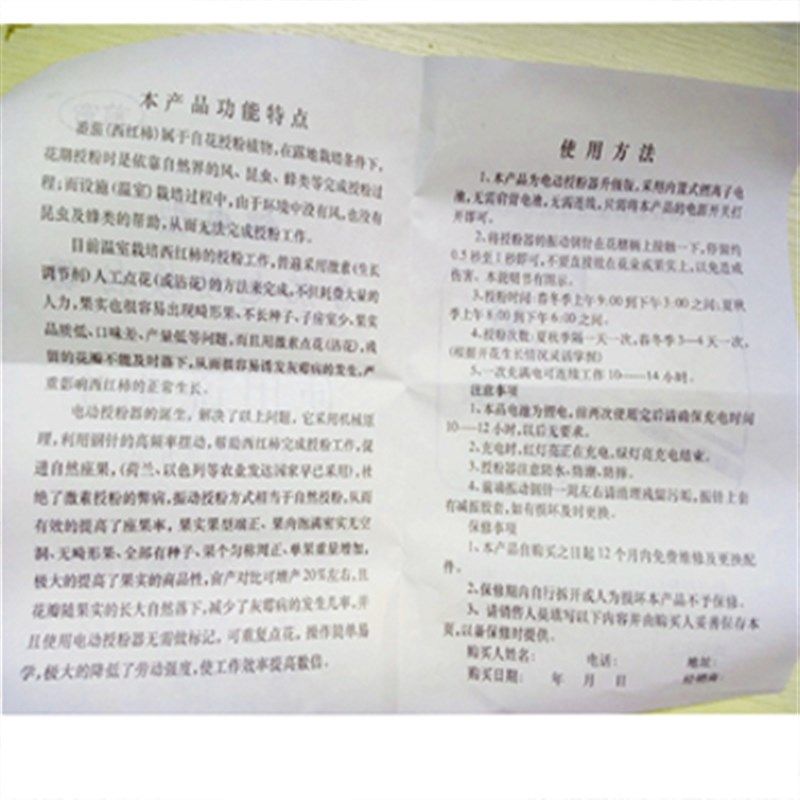 本产品功能特点
番茄(西红柿)属于自花授粉植物,在露地栽培条件下,
花期授粉时是依靠自然界的风、昆虫、蜂类等完成授粉过
程;而设施(温室)栽培过程中,由于环境中没有风,也没有
昆虫及蜂类的帮助,从而无法完成授粉工作。
目前温室栽培西红柿的授粉工作,普遍采用激素(生长
调节剂)人工点花(或沾花)的方法来完成,不但耗费大量的
人力,果实也很容易出现畸形果、不长种子、子房室少、果实
品质低、口味差、产量低等问题,而且用激素点花(沾花),残
留的花瓣不能及时落下,从而很容易诱发灰霉病的发生,严
重影响西红柿的正常生长。
电动授粉器的诞生,解决了以上问题,它采用机械原
理,利用钢针的高频率摆动,帮助西红柿完成授粉工作,促
进自然座果,(荷兰、以色列等农业发达国家早已采用),杜
绝了激素授粉的弊病,振动授粉方式相当于自然授粉,从而
有效的提高了座果率,果实果型端正、果肉饱满密实无空
洞、无畸形果、全部有种子、果个匀称周正、单果重量增加,
极大的提高了果实的商品性,亩产对比可增产20%左右,且
花瓣随果实的长大自然落下,减少了灰霉病的发生几率,并
且使用电动授粉器无需做标记,可重复点花,操作简单易
学,极大的降低了劳动强度,使工作效率提高数倍。
使用方法
1、本产品为电动授粉器升级版,采用内置式锂离子电
池,无需肩背电池,无需连线,只需将本产品的电源开关打
开即可。
2、将授粉器的振动钢针在花穗柄上接触一下,停留约
0.5秒至1秒即可,不要直接放在花朵或果实上,以免造成
伤害。本说明书有图示。
3、授粉时间:春冬季上午9:00到下午3:00之间;夏秋
季上午8:00到下午6:00之间。
4、授粉次数:夏秋季隔一天一次,春冬季3—4天一次,
(根据开花生长情况灵活掌握)
5、一次充满电可连续工作10——14小时。
注意事项
1、本品电池为锂电,前两次使用完后请确保充电时间
10—12小时,以后无要求。
2、充电时,红灯亮正在充电,绿灯亮充电结束。
3、授粉器注意防水、防潮、防摔。
4、前端振动钢针一周左右请清理残留污垢,振针上套
有减振胶套,如有损坏及时更换。
保修事项
1、本产品自购买之日起12个月内免费维修及更换配
件。
2、保修期内自行拆开或人为损坏本产品不予保修。
3、请销售人员填写以下内容并由购买人妥善保存本
页,以备保修时提供。
购买人姓名: 电话: 地址:
购买日期: 年 月 日 经销商: